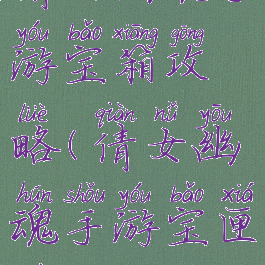 yóu bǎo xiāng gōng
游宝箱攻
lüè qiàn nǚ yōu
略(倩女幽
hún shǒu yóu bǎo xiá
魂手游宝匣